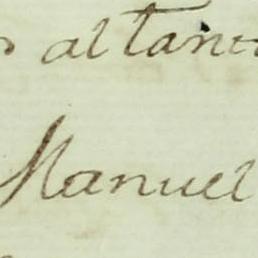 al tan
Manuel